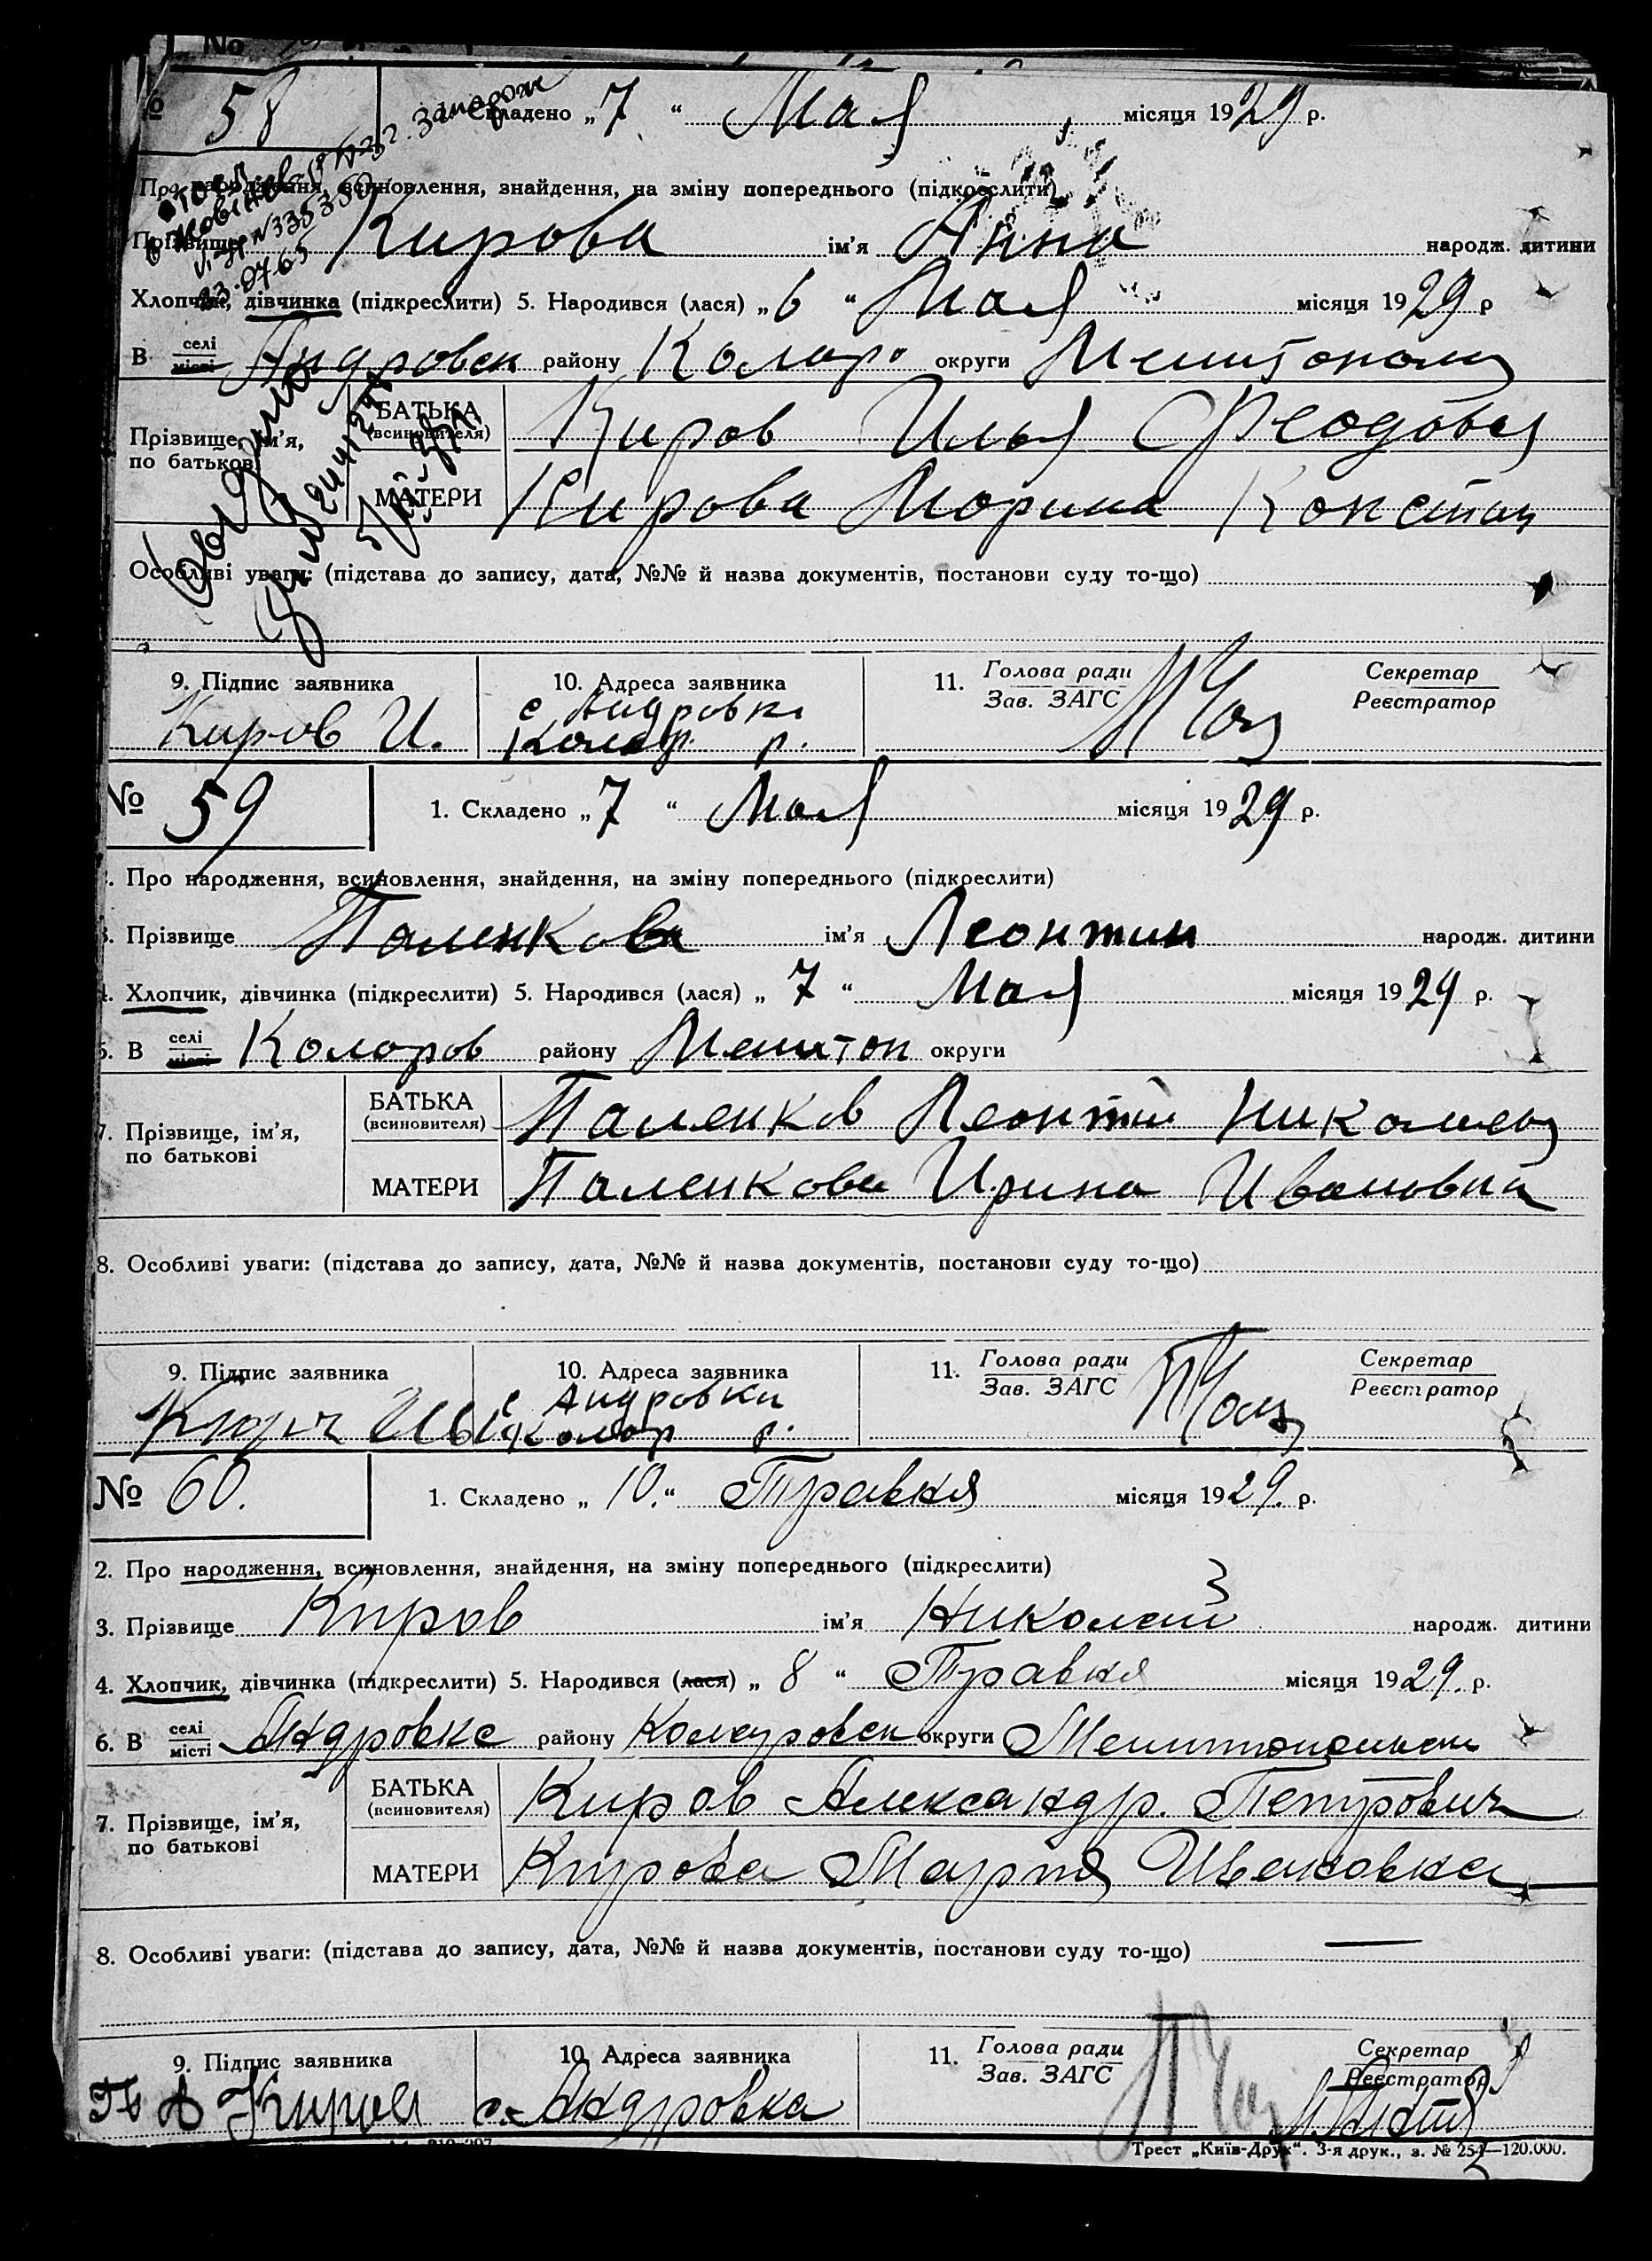 № 58 Складено „7“ Мая місяця 1929 р.
Про народження, всиновлення, знайдення, на зміну попереднього (підкреслити)
Прізвище Кирова ім'я Анна народж. дитини
Хлопчик, дівчинка (підкреслити) 5. Народився (лася) „6“ Мая місяця 1929 р
В селі місті Андровск района Колар округи Мелитополь
Прізвище, ім'я, по батькові
БАТЬКА (всиновителя) Киров Илья Феодов
МАТЕРИ Кирова Морина Констан
Особливі уваги: (підстава до запису, дата, №№ й назва документів, постанови суду то-що)
9. Підпис заявника 10. Адреса заявника 11. Голова ради Зав. ЗАГС Секретар Реєстратор
Киров И. с Андровка
Колар р.
№ 59 1. Складено „7“ Мая місяця 1929 р.
Про народження, всиновлення, знайдення, на зміну попереднього (підкреслити)
3. Прізвище Паленков ім'я Леонтий народж. дитини
4. Хлопчик, дівчинка (підкреслити) 5. Народився (лася) „7“ Мая місяця 1929 р.
6. В селі місті Коларов району Мелитоп округи
7. Прізвище, ім'я, по батькові
БАТЬКА (всиновителя) Паленков Леонтий Николаев
МАТЕРИ Паленкова Ирина Ивановна
8. Особливі уваги: (підстава до запису, дата, №№ й назва документів, постанови суду то-що)
9. Підпис заявника 10. Адреса заявника 11. Голова ради Зав. ЗАГС Секретар Реєстратор
с Андровки
Колар р.
№ 60. 1. Складено „10.“ Травня місяця 1929. р.
2. Про народження, всиновлення, знайдення, на зміну попереднього (підкреслити)
3. Прізвище Киров ім'я Николай народж. дитини
4. Хлопчик, дівчинка (підкреслити) 5. Народився (лася) „8“ Травня місяця 1929. р.
6. В селі місті Андровке району Коларовск округи
7. Прізвище, ім'я, по батькові
БАТЬКА (всиновителя) Киров Александр. Петрович
МАТЕРИ Кирова Мария Ивановна
8. Особливі уваги: (підстава до запису, дата, №№ й назва документів, постанови суду то-що)
9. Підпис заявника 10. Адреса заявника 11. Голова ради Зав. ЗАГС Секретар Реєстратор
Киров с. Андровка
Трест „Київ-Друк“. 3-я друк., з. № 254—120.000.